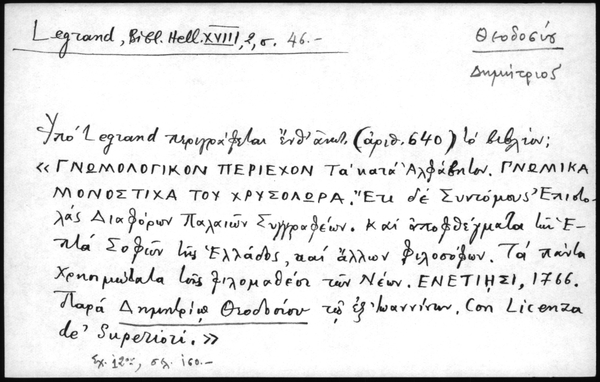 Legrand, Bibl. Hell. XVIII, 2, σ. 46.-
Θεοδοσίου
Δημήτριος
Ὑπό Legrand περιγράφεται ἐνθ' ἀνωτ. (ἀριθ. 640) τό βιβλίον;
«ΓΝΩΜΟΛΟΓΙΚΟΝ ΠΕΡΙΕΧΟΝ Τά κατά Ἀλφάβητον. ΓΝΩΜΙΚΑ
ΜΟΝΟΣΤΙΧΑ ΤΟΥ ΧΡΥΣΟΛΩΡΑ. Ἔτι δέ Συντόμους Ἐπιστο-
λάς Διαφόρων Παλαιῶν Συγγραφέων. Καί ἀποφθέγματα τῶν Ἑ-
πτά Σοφῶν τῆς Ἑλλάδος, καί ἄλλων φιλοσόφων. Τά πάντα
Χρησιμώτατα τοῖς φιλομαθέσι τῶν Νέων. ΕΝΕΤΙῌΣΙ, 1766.
Παρά Δημητρίῳ Θεοδοσίου τῷ ἐξ Ἰωαννίνων. Con Licenza
de' Superiori.»
Σχ. 12ον, σελ. 160.-